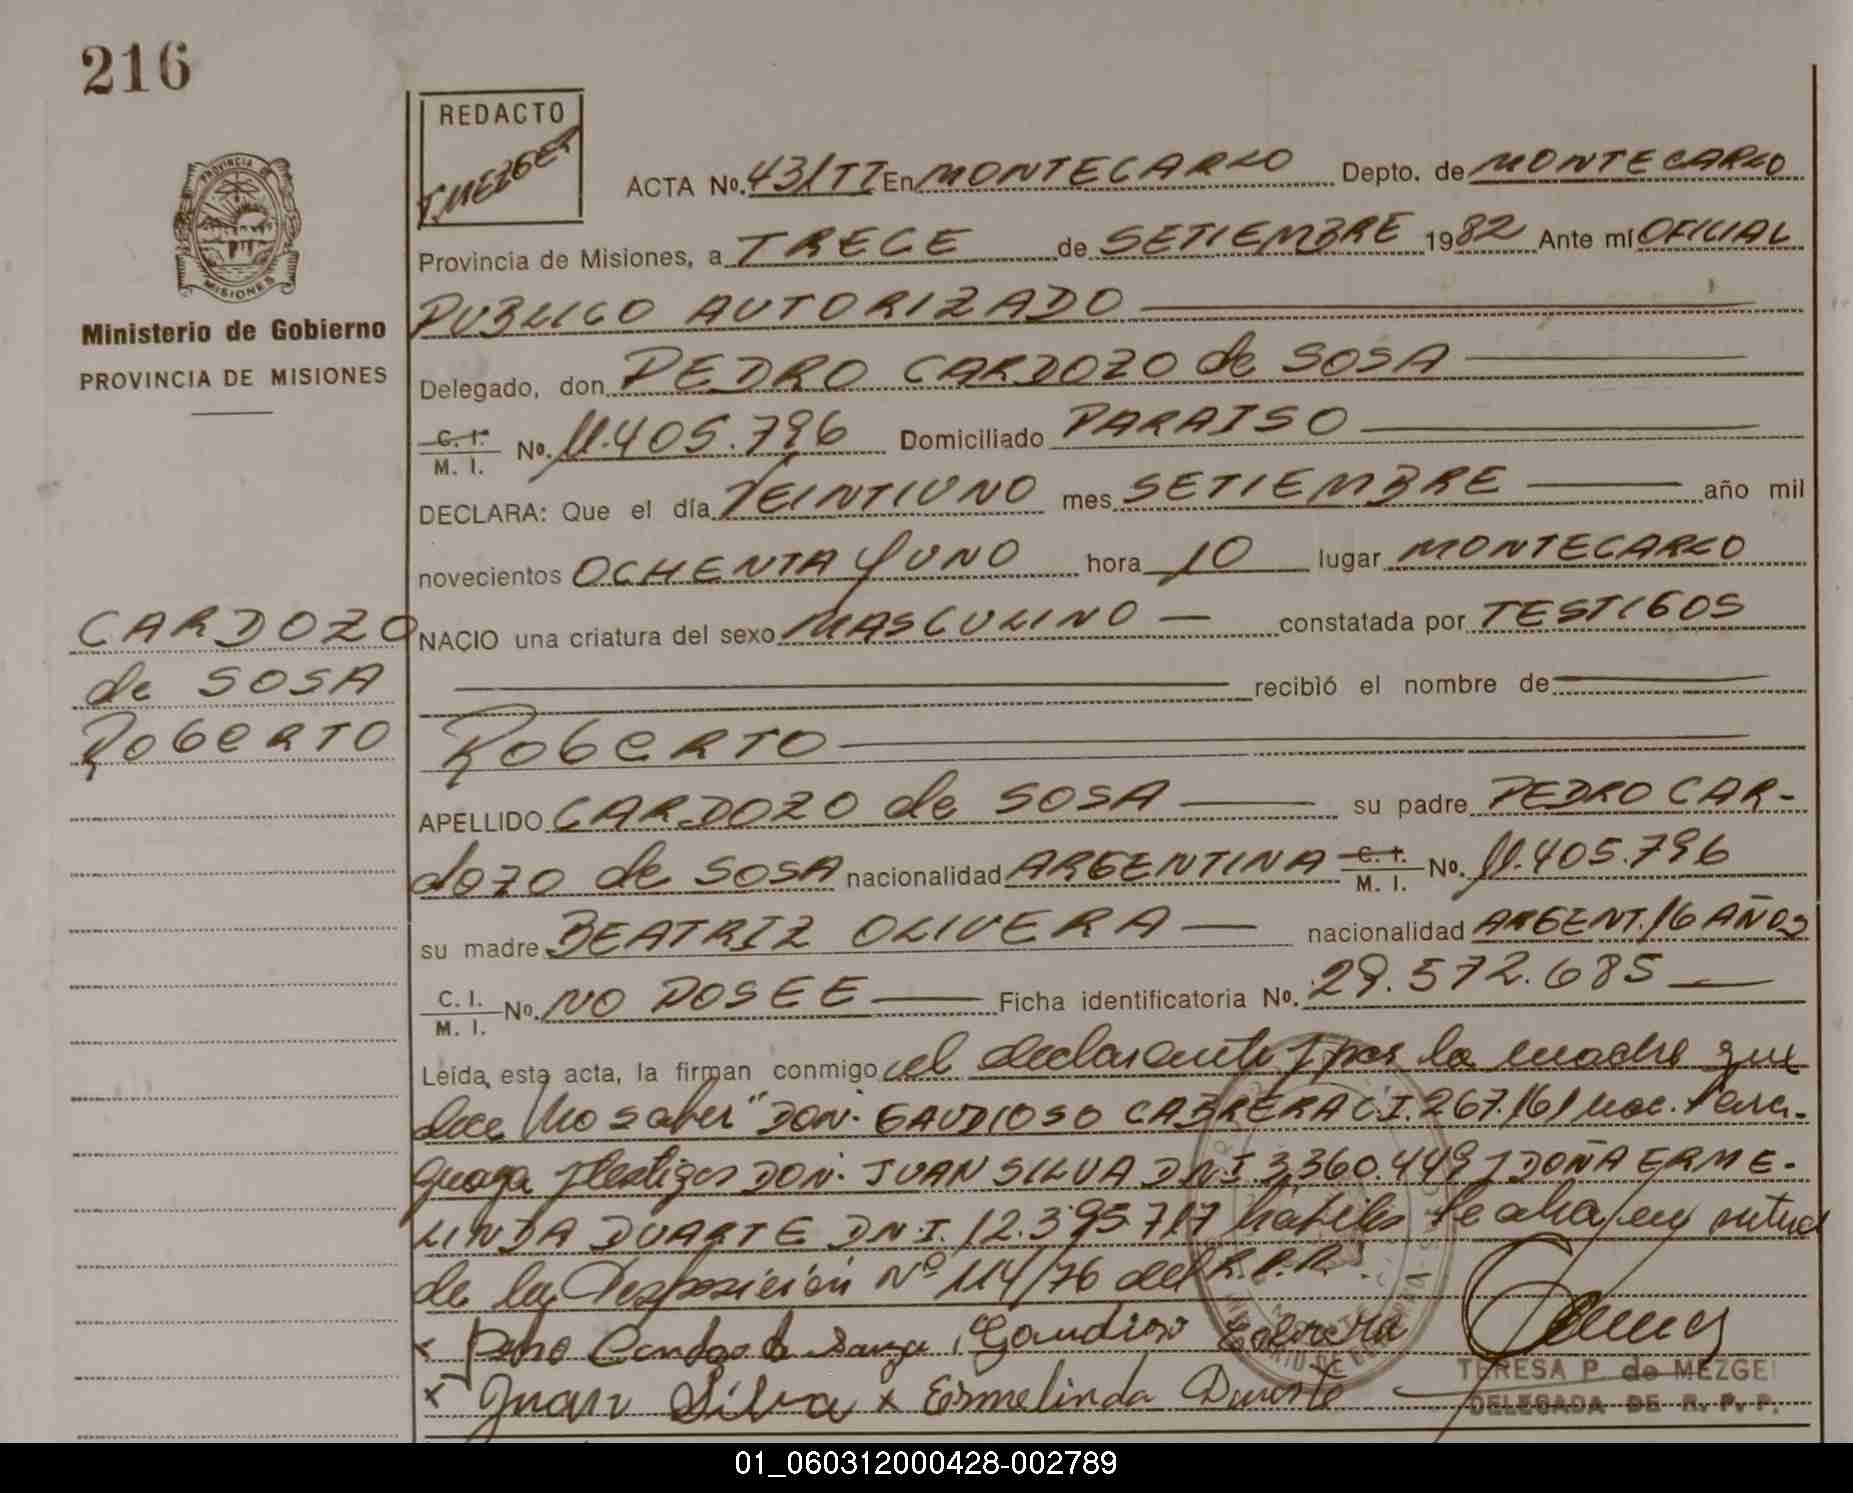 216
REDACTO
T.MEZGER
PROVINCIA DE
MISIONES
Ministerio de Gobierno
PROVINCIA DE MISIONES
ACTA No. 43/TT En MONTECARLO Depto. de MONTECARLO
Provincia de Misiones, a TRECE de SETIEMBRE 1982 Ante mí OFICIAL
PUBLICO AUTORIZADO
Delegado, don PEDRO CARDOZO de SOSA
C. I. M. I. No. 11.405.796 Domiciliado PARAISO
DECLARA: Que el día VEINTIUNO mes SETIEMBRE año mil
novecientos OCHENTA Y UNO hora 10 lugar MONTECARLO
CARDOZO
de SOSA
ROBERTO
NACIO una criatura del sexo MASCULINO constatada por TESTIGOS
recibió el nombre de
ROBERTO
APELLIDO CARDOZO de SOSA su padre PEDRO CAR-
dozo de SOSA nacionalidad ARGENTINA C. I. M. I. No. 11.405.796
su madre BEATRIZ OLIVERA nacionalidad ARGENT. 16 AÑOS
C. I. M. I. No. NO POSEE Ficha identificatoria No. 29.572.685
Leída esta acta, la firman conmigo el declarante y por la madre que
dice "No saber" DON: GAUDIOSO CABRERA C.I. 267.161 nac. Para-
guaya y testigos DON: JUAN SILVA D.N.I. 3.360.449 y DOÑA ERME-
LINDA DUARTE D.N.I. 12.395.717 hábiles en virtud
de la Disposición Nº 114/76 del R.P.P.
x Pedro de , Gaudioso Cabrera
x Juan Silva x Ermelinda Duarte
TERESA P. de MEZGER
DELEGADA DE R. P. P.
01_060312000428-002789